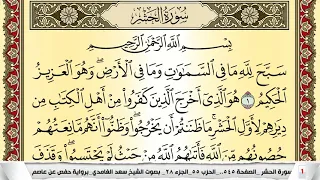 سُورَةُ الحَشْرِ
بِسْمِ ٱللَّهِ ٱلرَّحْمَٰنِ ٱلرَّحِيمِ
سَبَّحَ لِلَّهِ مَا فِي ٱلسَّمَٰوَٰتِ وَمَا فِي ٱلْأَرْضِ ۖ وَهُوَ ٱلْعَزِيزُ
ٱلْحَكِيمُ ١ هُوَ ٱلَّذِيٓ أَخْرَجَ ٱلَّذِينَ كَفَرُوا۟ مِنْ أَهْلِ ٱلْكِتَٰبِ مِن
دِيَٰرِهِمْ لِأَوَّلِ ٱلْحَشْرِ ۚ مَا ظَنَنتُمْ أَن يَخْرُجُوا۟ ۖ وَظَنُّوٓا۟ أَنَّهُم مَّانِعَتُهُمْ
حُصُونُهُم مِّنَ ٱللَّهِ فَأَتَىٰهُمُ ٱللَّهُ مِنْ حَيْثُ لَمْ يَحْتَسِبُوا۟ ۖ وَقَذَفَ
سورة الحشر _الصفحة ٥٤٥_ الحزب ٥٥_الجزء ٢٨_ بصوت الشيخ سعد الغامدي_برواية حفص عن عاصم
1